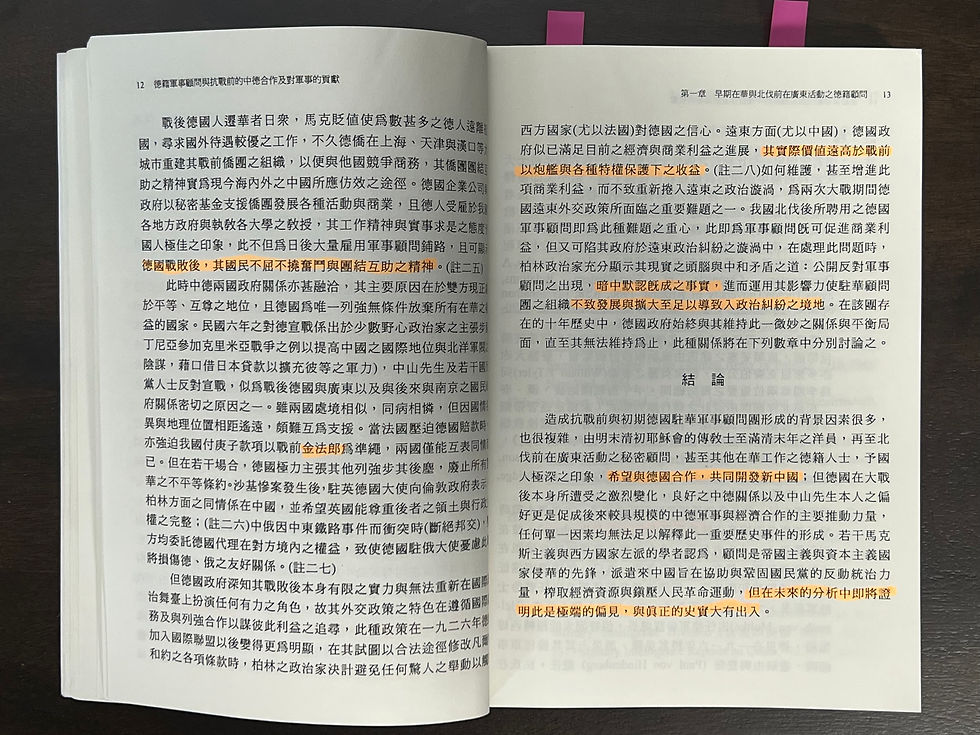 12 德籍軍事顧問與抗戰前的中德合作及對軍事的貢獻
戰後德國人遷華者日衆，馬克貶値使爲數甚多之德人遠離
國，尋求國外待遇較優之工作，不久德僑在上海、天津與漢口等
城市重建其戰前僑團之組織，以便與他國競爭商務，其僑團團結
助之精神實爲現今海內外之中國所應仿效之途徑。德國企業公司
政府以秘密基金支援僑團發展各種活動與商業，且德人受雇於我
各地方政府與執敎各大學之敎授，其工作精神與實事求是之態度
國人極佳之印象，此不但爲日後大量雇用軍事顧問鋪路，且可顯
德國戰敗後，其國民不屈不撓奮鬥與團結互助之精神。(註二五)
此時中德兩國政府關係亦甚融洽，其主要原因在於雙方現正
於平等、互尊之地位，且德國爲唯一列強無條件放棄所有在華之
益的國家。民國六年之對德宣戰係出於少數野心政治家之主張
丁尼亞參加克里米亞戰爭之例以提高中國之國際地位與北洋軍
陰謀，藉口借日本貸款以擴充彼等之軍力)，中山先生及若干國
黨人士反對宣戰，似爲戰後德國與廣東以及與後來與南京之國民
府關係密切之原因之一。雖兩國處境相似，同病相憐，但因國情
異與地理位置相距遙遠，頗難互爲支援。當法國壓迫德國賠款時
亦強迫我國付庚子款項以戰前金法郎爲準繩，兩國僅能互表同情
已。但在若干場合，德國極力主張其他列強步其後塵，廢止所有
華之不平等條約。沙基慘案發生後，駐英德國大使向倫敦政府表示
柏林方面之同情係在中國，並希望英國能尊重後者之領土與行政
權之完整；(註二六)中俄因中東鐵路事件而衝突時(斷絕邦交)，
方均委託德國代理在對方境內之權益，致使德國駐俄大使憂慮此
將損傷德、俄之友好關係。(註二七)
但德國政府深知其戰敗後本身有限之實力與無法重新在國際
治舞臺上扮演任何有力之角色，故其外交政策之特色在遵循國際
務及與列強合作以謀彼此利益之追尋，此種政策在一九二六年德
加入國際聯盟以後變得更爲明顯，在其試圖以合法途徑修改凡爾
和約之各項條款時，柏林之政治家決計避免任何驚人之舉動以觸
第一章 早期在華與北伐前在廣東活動之德籍顧問 13
西方國家(尤以法國)對德國之信心。遠東方面(尤以中國)，德國政
府似已滿足目前之經濟與商業利益之進展，其實際價値遠高於戰前
以炮艦與各種特權保護下之收益。(註二八)如何維護，甚至增進此
項商業利益，而不致重新捲入遠東之政治漩渦，爲兩次大戰期間德
國遠東外交政策所面臨之重要難題之一。我國北伐後所聘用之德國
軍事顧問卽爲此種難題之重心，此卽爲軍事顧問旣可促進商業利
益，但又可陷其政府於遠東政治糾紛之漩渦中，在處理此問題時，
柏林政治家充分顯示其現實之頭腦與中和矛盾之道：公開反對軍事
顧問之出現，暗中默認旣成之事實，進而運用其影響力使駐華顧問
團之組織不致發展與擴大至足以導致入政治糾紛之境地。在該團存
在的十年歷史中，德國政府始終與其維持此一微妙之關係與平衡局
面，直至其無法維持爲止，此種關係將在下列數章中分別討論之。
結論
造成抗戰前與初期德國駐華軍事顧問團形成的背景因素很多，
也很複雜，由明末清初耶穌會的傳敎士至滿清末年之洋員，再至北
伐前在廣東活動之秘密顧問，甚至其他在華工作之德籍人士，予國
人極深之印象，希望與德國合作，共同開發新中國；但德國在大戰
後本身所遭受之激烈變化，良好之中德關係以及中山先生本人之偏
好更是促成後來較具規模的中德軍事與經濟合作的主要推動力量，
任何單一因素均無法足以解釋此一重要歷史事件的形成。若干馬克
斯主義與西方國家左派的學者認爲，顧問是帝國主義與資本主義國
家侵華的先鋒，派遣來中國旨在協助與鞏固國民黨的反動統治力
量，榨取經濟資源與鎭壓人民革命運動，但在未來的分析中卽將證
明此是極端的偏見，與眞正的史實大有出入。